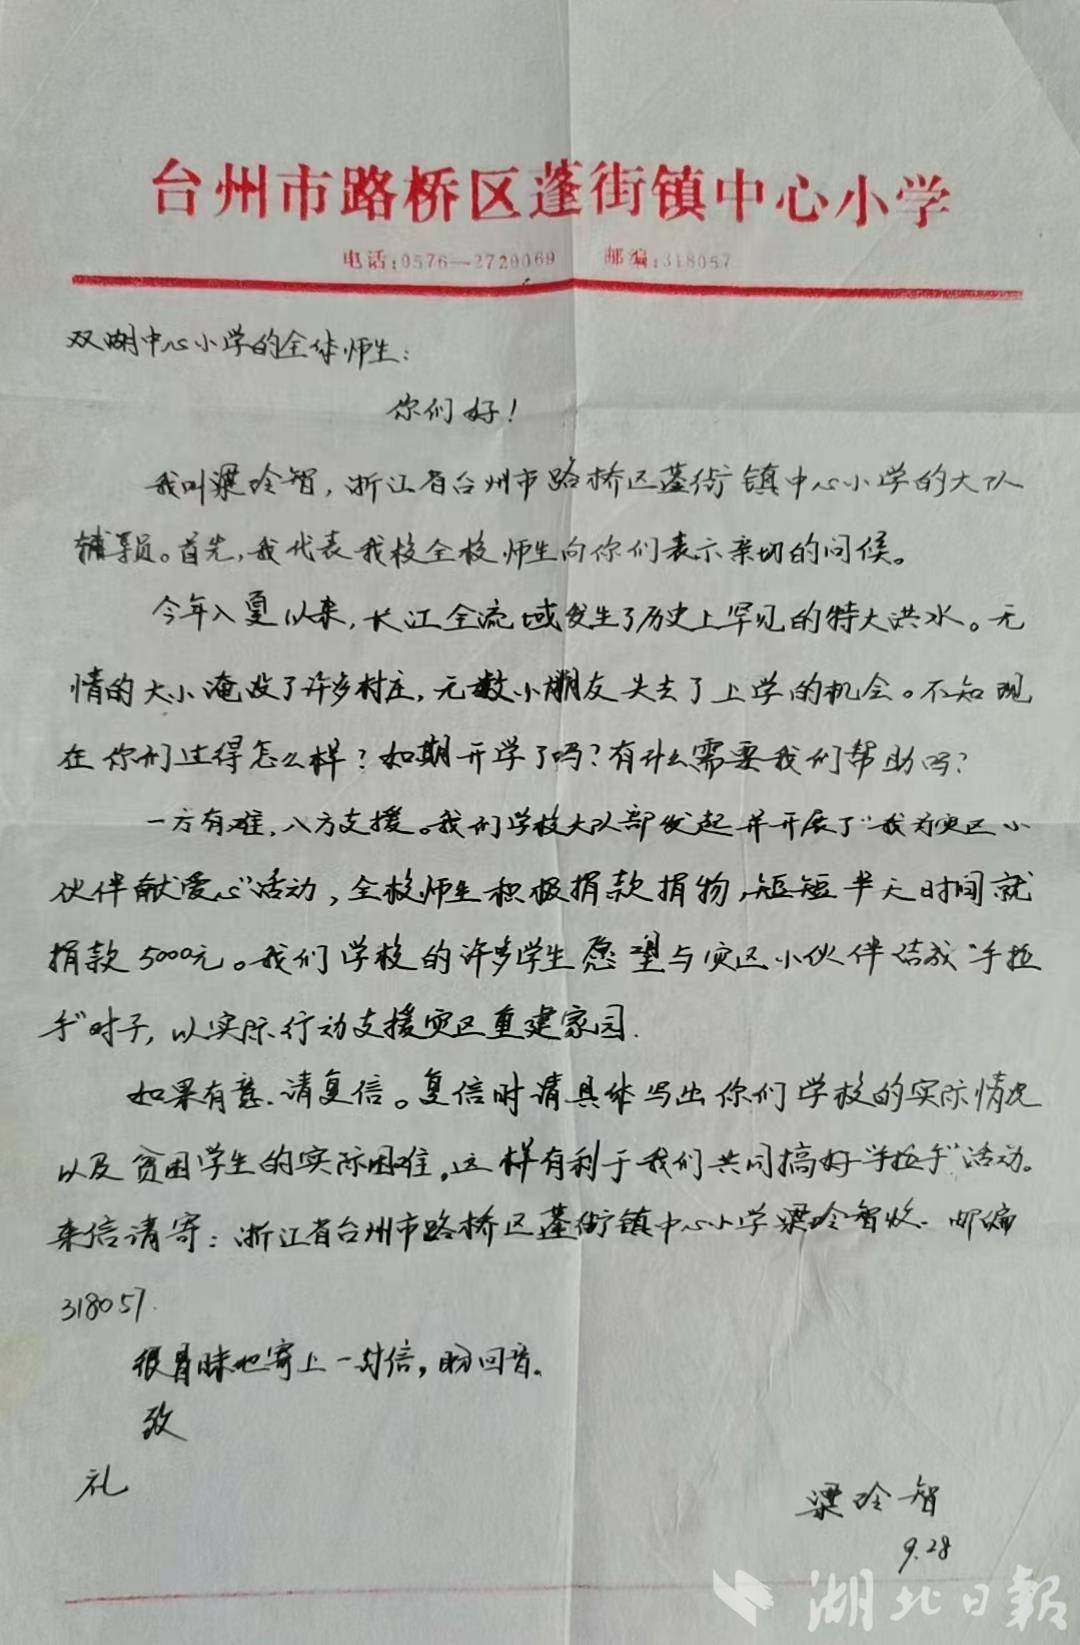 台州市路桥区蓬街镇中心小学
电话:0576—2720069 邮编:318057
双湖中心小学的全体师生:
你们好!
我叫梁玲智,浙江省台州市路桥区蓬街镇中心小学的大队
辅导员。首先,我代表我校全校师生向你们表示亲切的问候。
今年入夏以来,长江全流域发生了历史上罕见的特大洪水。无
情的大小淹没了许多村庄,无数小朋友失去了上学的机会。不知现
在你们过得怎么样?如期开学了吗?有什么需要我们帮助吗?
一方有难,八方支援。我们学校大队部发起并开展了“我为灾区小
伙伴献爱心”活动,全校师生积极捐款捐物,短短半天时间就
捐款5000元。我们学校的许多学生愿望与灾区小伙伴结成“手拉
手”对子,以实际行动支援灾区重建家园.
如果有意.请复信。复信时请具体写出你们学校的实际情况
以及贫困学生的实际困难,这样有利于我们共同搞好“手拉手”活动。
来信请寄:浙江省台州市路桥区蓬街镇中心小学梁玲智收.邮编
318057.
很冒昧地寄上一封信,盼回音。
致
礼
梁玲智
9.28
湖北日報